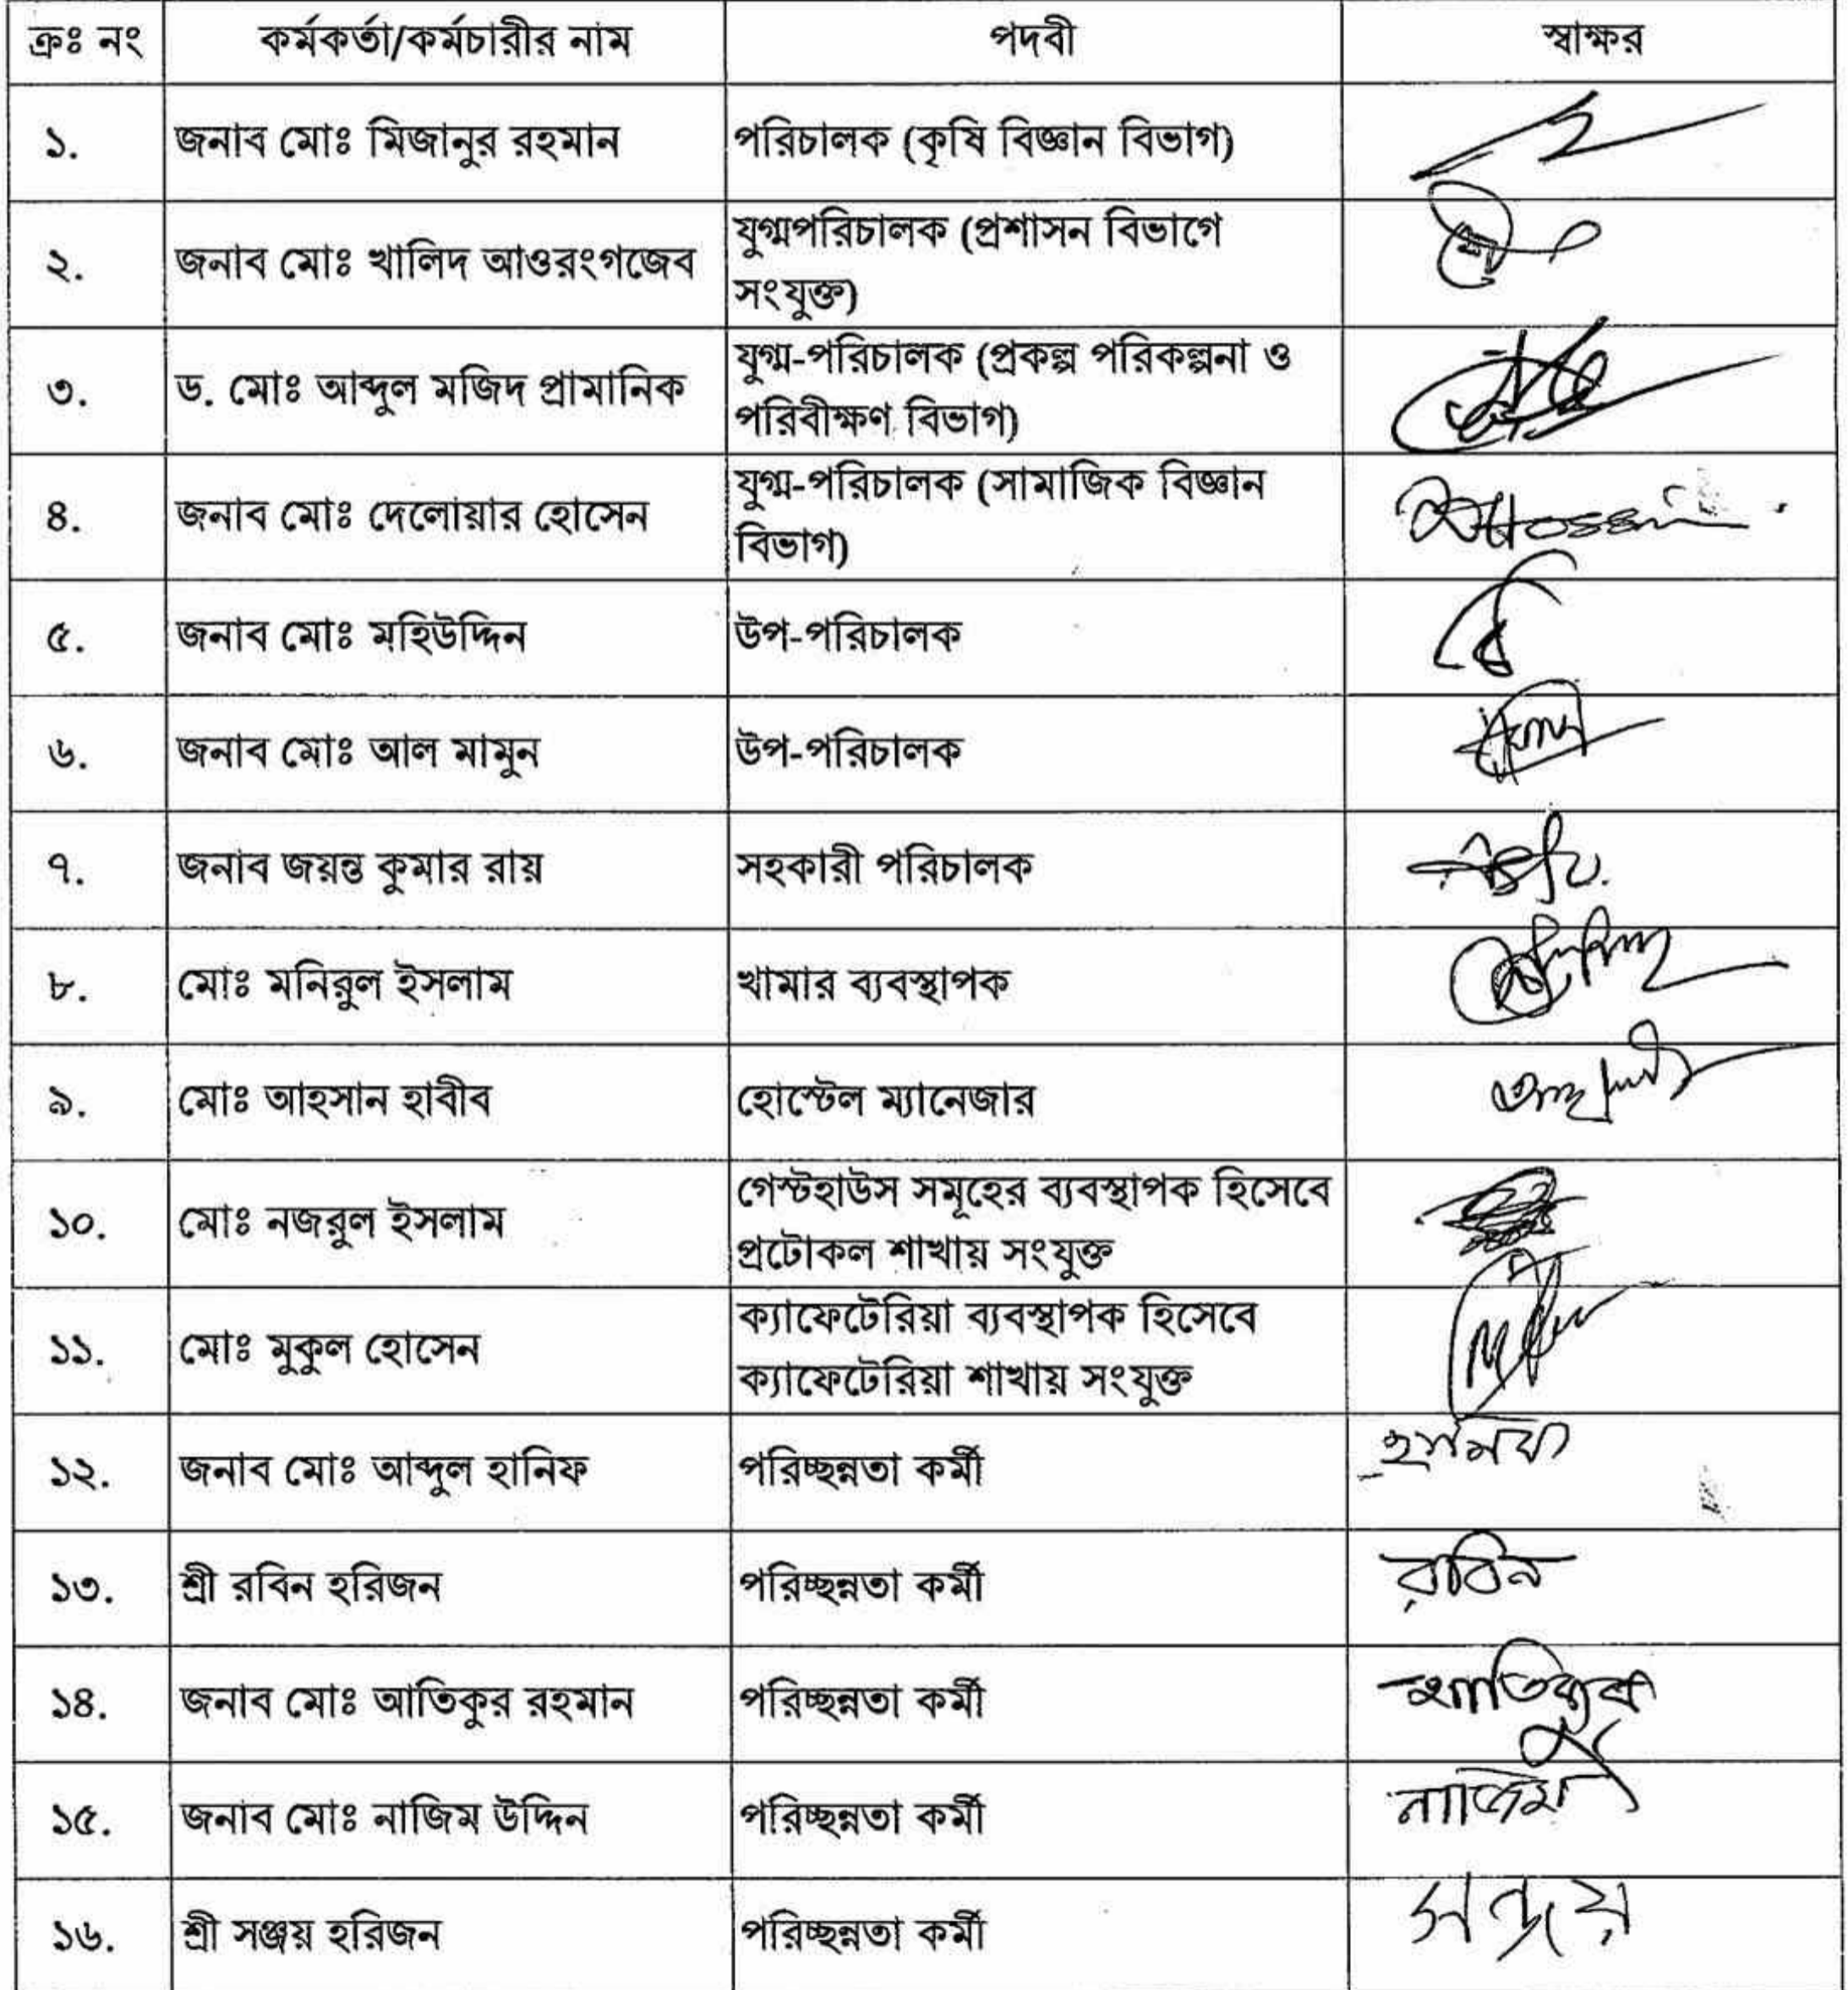 ক্রঃ নং কর্মকর্তা/কর্মচারীর নাম পদবী স্বাক্ষর
১. জনাব মোঃ মিজানুর রহমান পরিচালক (কৃষি বিজ্ঞান বিভাগ)
২. জনাব মোঃ খালিদ আওরংগজেব যুগ্মপরিচালক (প্রশাসন বিভাগে
সংযুক্ত)
৩. ড. মোঃ আব্দুল মজিদ প্রামানিক যুগ্ম-পরিচালক (প্রকল্প পরিকল্পনা ও
পরিবীক্ষণ বিভাগ)
৪. জনাব মোঃ দেলোয়ার হোসেন যুগ্ম-পরিচালক (সামাজিক বিজ্ঞান
বিভাগ)
৫. জনাব মোঃ মহিউদ্দিন উপ-পরিচালক
৬. জনাব মোঃ আল মামুন উপ-পরিচালক
৭. জনাব জয়ন্ত কুমার রায় সহকারী পরিচালক
৮. মোঃ মনিরুল ইসলাম খামার ব্যবস্থাপক
৯. মোঃ আহসান হাবীব হোস্টেল ম্যানেজার
১০. মোঃ নজরুল ইসলাম গেস্টহাউস সমূহের ব্যবস্থাপক হিসেবে
প্রটোকল শাখায় সংযুক্ত
১১. মোঃ মুকুল হোসেন ক্যাফেটেরিয়া ব্যবস্থাপক হিসেবে
ক্যাফেটেরিয়া শাখায় সংযুক্ত
১২. জনাব মোঃ আব্দুল হানিফ পরিচ্ছন্নতা কর্মী
১৩. শ্রী রবিন হরিজন পরিচ্ছন্নতা কর্মী রবিন
১৪. জনাব মোঃ আতিকুর রহমান পরিচ্ছন্নতা কর্মী আতিকুর
১৫. জনাব মোঃ নাজিম উদ্দিন পরিচ্ছন্নতা কর্মী নাজিম
১৬. শ্রী সঞ্জয় হরিজন পরিচ্ছন্নতা কর্মী